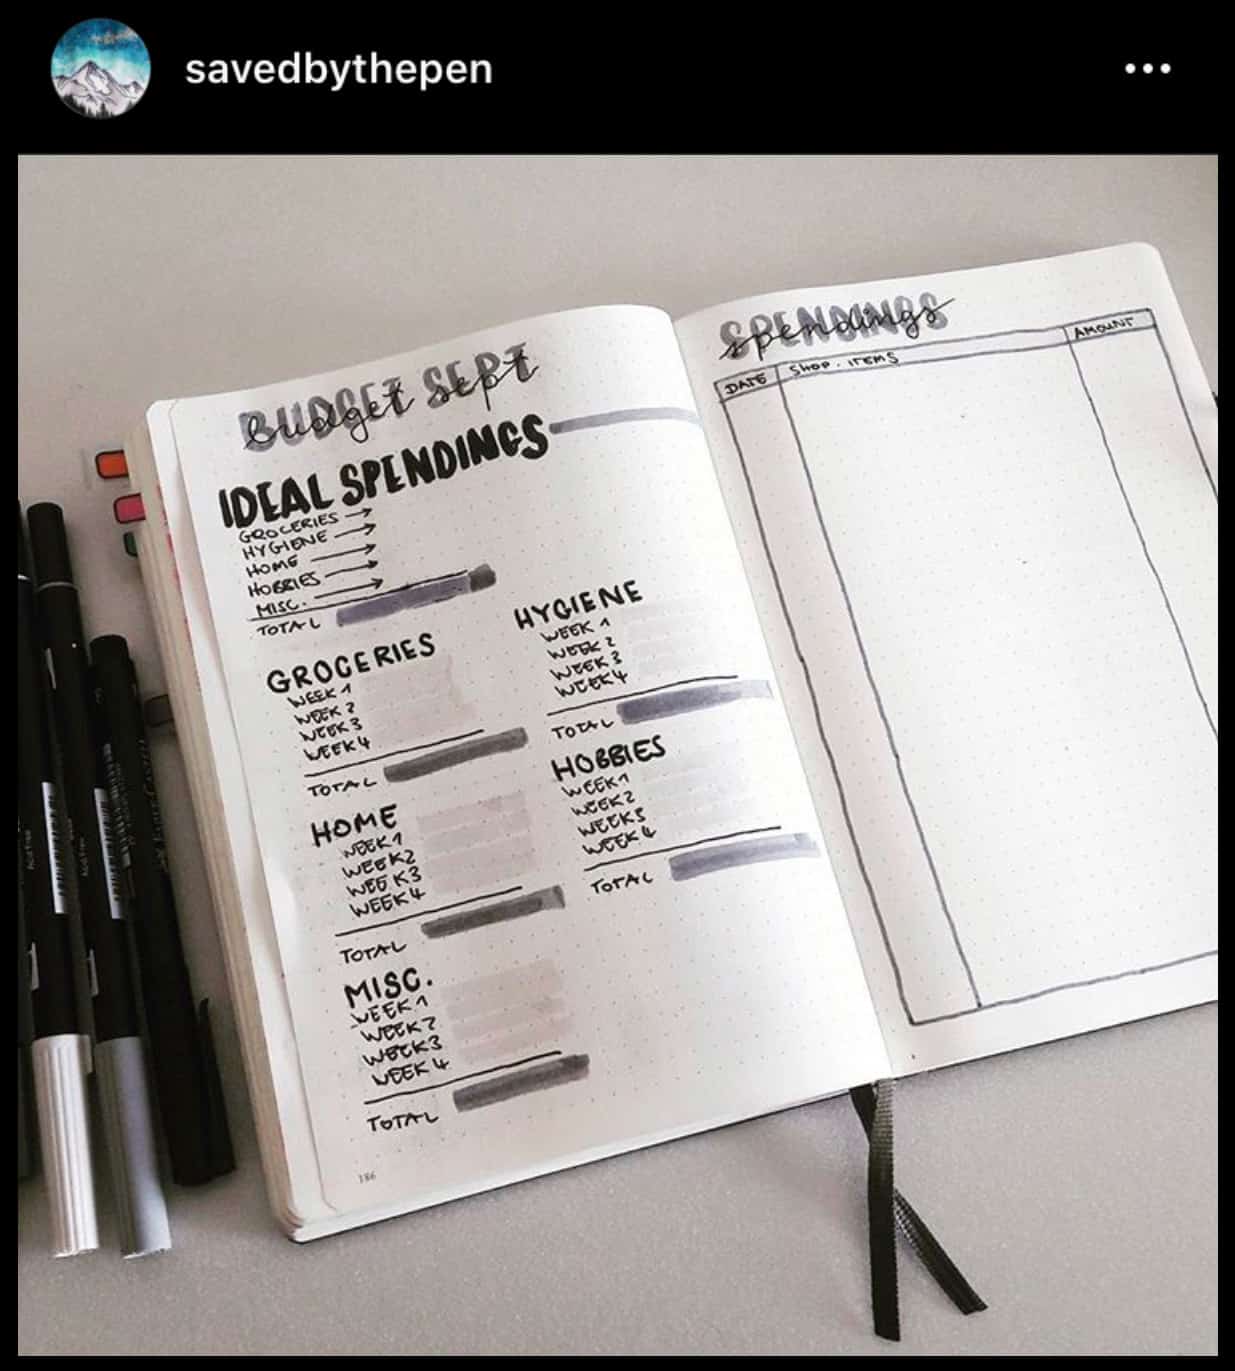 savedbythepen
BUDGET SEPT
budget sept
IDEAL SPENDINGS
GROCERIES →
HYGIENE →
HOME →
HOBBIES →
MISC. →
TOTAL
GROCERIES
WEEK 1
WEEK 2
WEEK 3
WEEK 4
TOTAL
HOME
WEEK 1
WEEK 2
WEEK 3
WEEK 4
TOTAL
MISC.
WEEK 1
WEEK 2
WEEK 3
WEEK 4
TOTAL
186
HYGIENE
WEEK 1
WEEK 2
WEEK 3
WEEK 4
TOTAL
HOBBIES
WEEK 1
WEEK 2
WEEK 3
WEEK 4
TOTAL
SPENDINGS
spendings
DATE SHOP. ITEMS AMOUNT